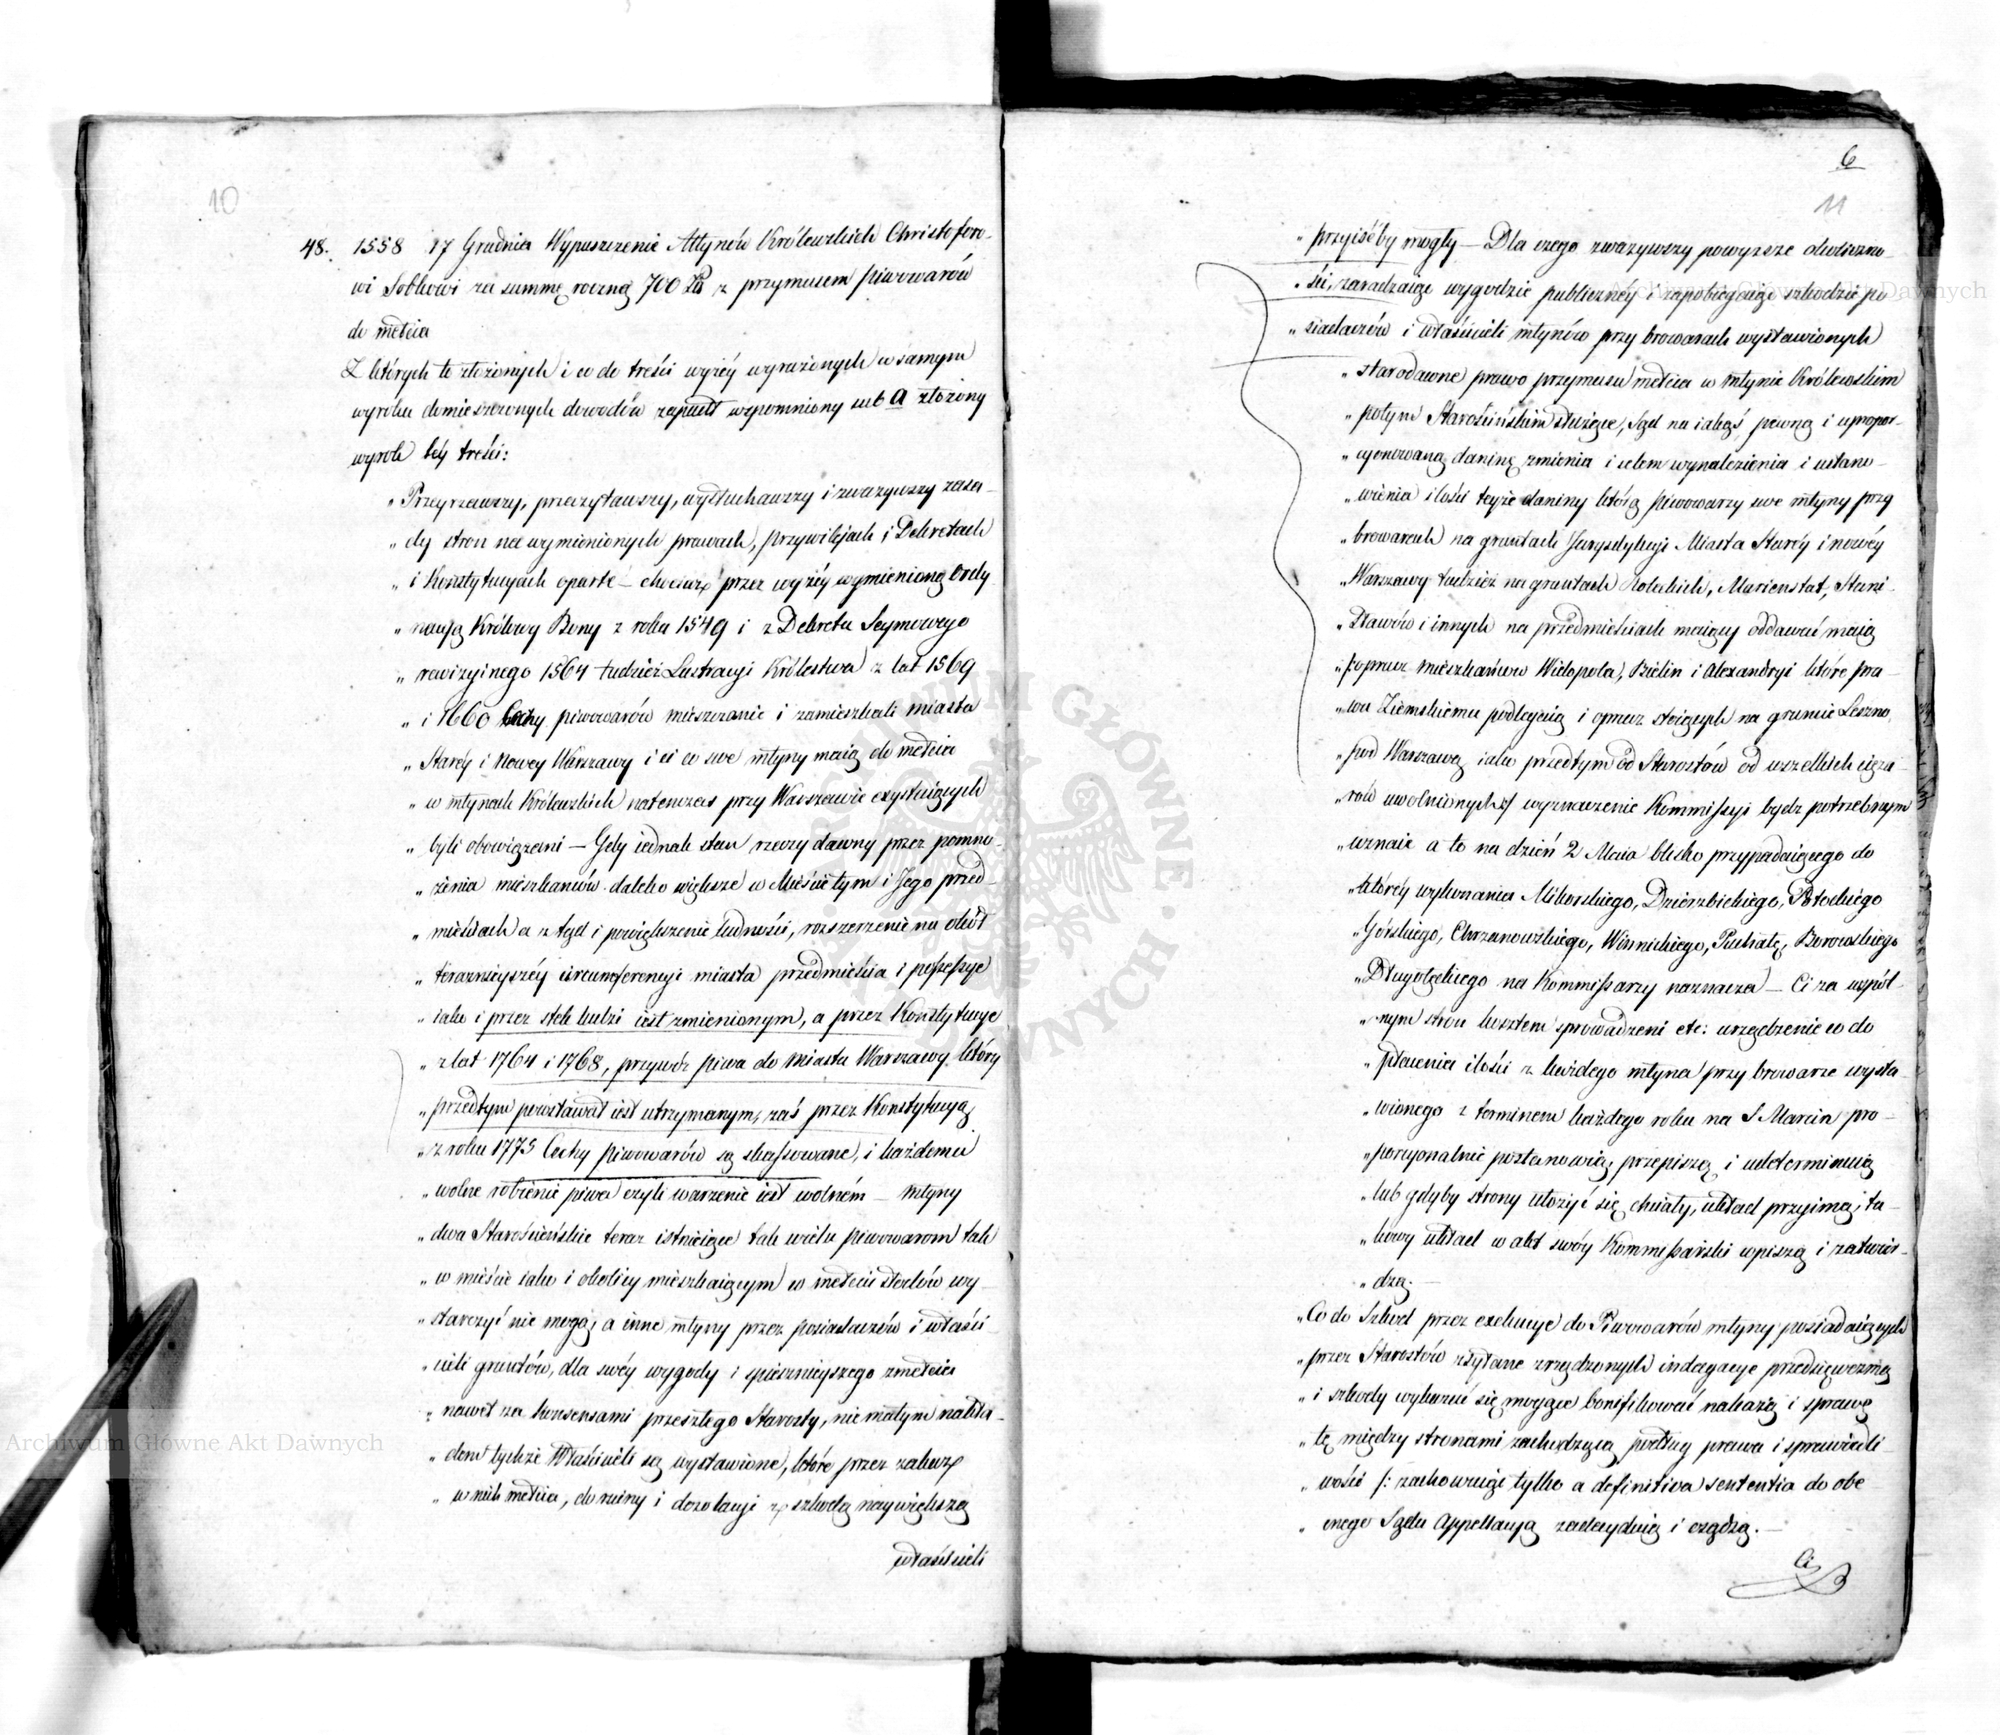 10
48. 1558 17 Grudnia Wypuszczenie Młynów Królewskich Christoforo-
wi Sobkowi za summę roczną 700 Zł z przymusem piwowarów
do mełcia
Z których to złożonych i co do treści wyżéy wyrażonych w samym
wyroku domieszczonych dowodów zapadł wspomniony sub A złożony
wyrok téy treści:
„Przeyrzawszy, przeczytawszy, wysłuchawszy i zważywszy zasa-
„dy stron na wymienionych prawach, przywilejach i Dekretach
„i Konstytucyach oparte – chociaż przez wyżéy wymienioną Ordy-
„nacyą Królowy Bony z roku 1549 i z Dekretu Seymowego
„rewizyinego 1564 tudzież Lustracyi Królestwa z lat 1569
„i 1660 Cechy piwowarów mieszczanie i zamieszkali miasta
„Staréy i Nowey Warszawy i ci co swe młyny maią do mełcia
„w młynach Królewskich natenczas przy Warszawie exystuiących
„byli obowiązani – Gdy iednak stan rzeczy dawny przez pomno-
„żenia mieszkańców daleko większe w Mieście tym i Jego przed-
„mieściach a ztąd i powiększenie ludności, rozszerzenie na około
„teraznieyszéy circumferencyi miasta przedmieścia i possessye
„iako i przez stek ludzi iest zmienionym, a przez Konstytucye
„z lat 1764 i 1768, przywóz piwa do miasta Warszawy który
„przedtym powstawał iest utrzymanym, zaś przez Konstytucyą
„z roku 1775 Cechy piwowarów są skassowane, i każdemu
„wolne robienie piwa czyli warzenie iest wolném – młyny
„dwa Starościńskie teraz istnieiące tak wielu piwowarom tak
„w mieście iako i okolicy mieszkaiącym w mełciu słodów wy-
„starczyć nie mogą, a inne młyny przez posiadaczów i właści-
„cieli gruntów, dla swéy wygody i spieszneyszego zmełcia
„nawet za konsensami przeszłego Starosty, nie małym nakła-
„dem tychże Właścicieli są wystawione, które przez zakaz
„w nich mełcia, do ruiny i dezolacyi z szkodą naywiększą
właścicieli
6
11
„przyiśćby mogły – Dla czego zważywszy powyższe okoliczno-
„ści, zaradzaiąc wygodzie publicznéy i zapobiegaiąc szkodzie po-
„siadaczów i właścicieli młynów przy browarach wystawionych
„starodawne prawo przymusu mełcia w młynie Królewskim
„potym Starościńskim służące, Sąd na iakąś pewną i upropor-
„cyonowaną daninę zmienia i celem wynalezienia i ustano-
„wienia ilości teyże daniny którą piwowarzy swe młyny przy
„browarach na gruntach Jurysdykcyi Miasta Staréy i nowéy
„Warszawy tudzież na gruntach Solackich, Marienstat, Stani-
„sławów i innych na przedmieściach maiący oddawać maią
„(oprucz mieszkańców Wielopola, Bielin i Alexandryi które pra-
„wu Ziemskiemu podlegaią i oprucz stoiących na gruncie Leszno
„pod Warszawą iako przedtym od Starostów od wszelkich cięża-
„rów uwolnionych) wyznaczenie Kommissyi bydź potrzebnym
„uznaie a to na dzień 2 Maia blisko przypadaiącego do
„któréy wykonania Mikorskiego, Dzierzbickiego, Potockiego
„Górskiego, Chrzanowskiego, Winnickiego, Puchałę, Borowskiego
„Długołęckiego na Kommissarzy naznacza – Ci za wspól-
„nym stron kosztem sprowadzeni etc: urządzenie co do
„płacenia ilości z każdego młyna przy browarze wysta-
„wionego z terminem każdego roku na S Marcin pro-
„porcyonalnie postanowią, przepiszą i udeterminuią
„lub gdyby strony ułożyć się chciały, układ przyimą, ta-
„kowy układ w akt swóy Kommissarski wpiszą i zatwier-
„dzą. –
„Co do Szkod przez exekucye do Piwowarów młyny posiadaiących
„przez Starostów zsyłane zrządzonych indagacye przedsięwezmą
„i szkody wykazać się mogące bonifikować nakażą i sprawę
„tę między stronami zachodzącą podług prawa i sprawiedli-
„wości /: zachowuiąc tylko a definitiva sententia do obe-
„cnego Sądu Appellacyą zadecyduią i osądzą. –
Ci